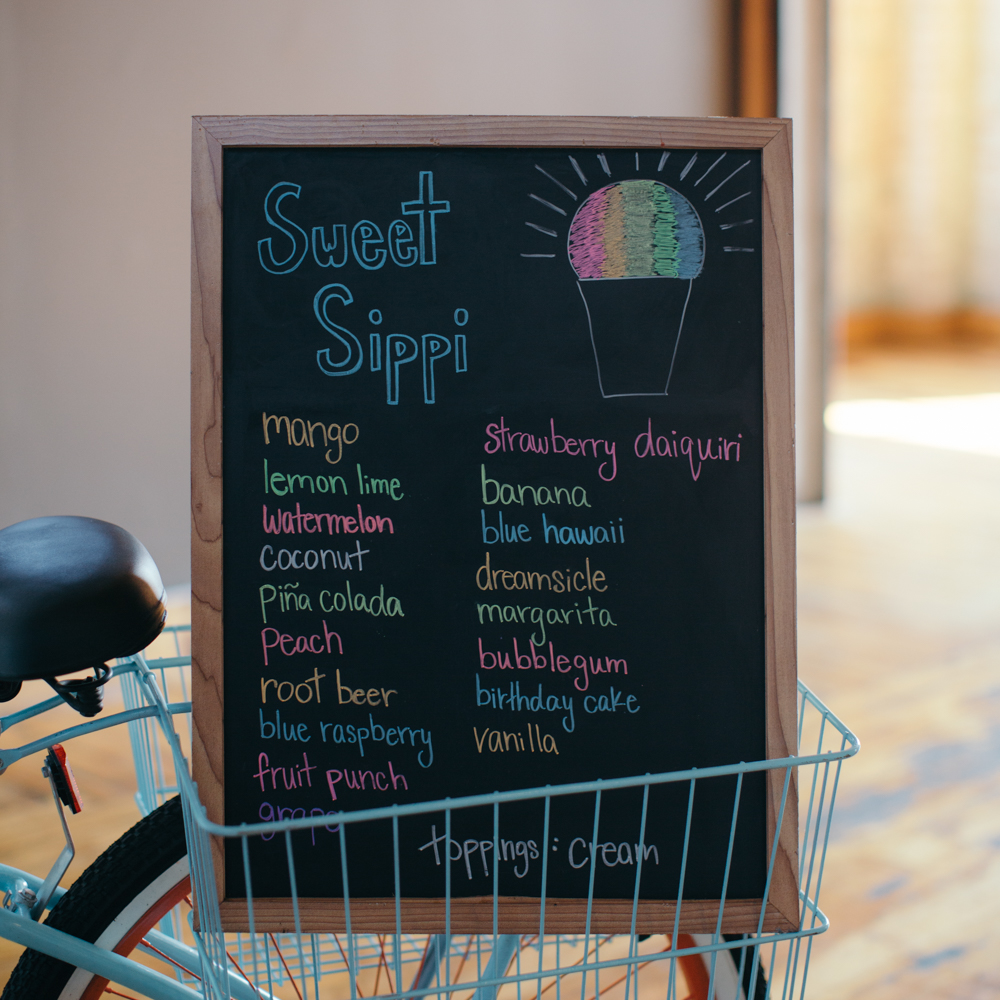 Sweet
Sippi
mango
lemon lime
watermelon
coconut
piña colada
peach
root beer
blue raspberry
fruit punch
grape
strawberry daiquiri
banana
blue hawaii
dreamsicle
margarita
bubblegum
birthday cake
vanilla
toppings: cream